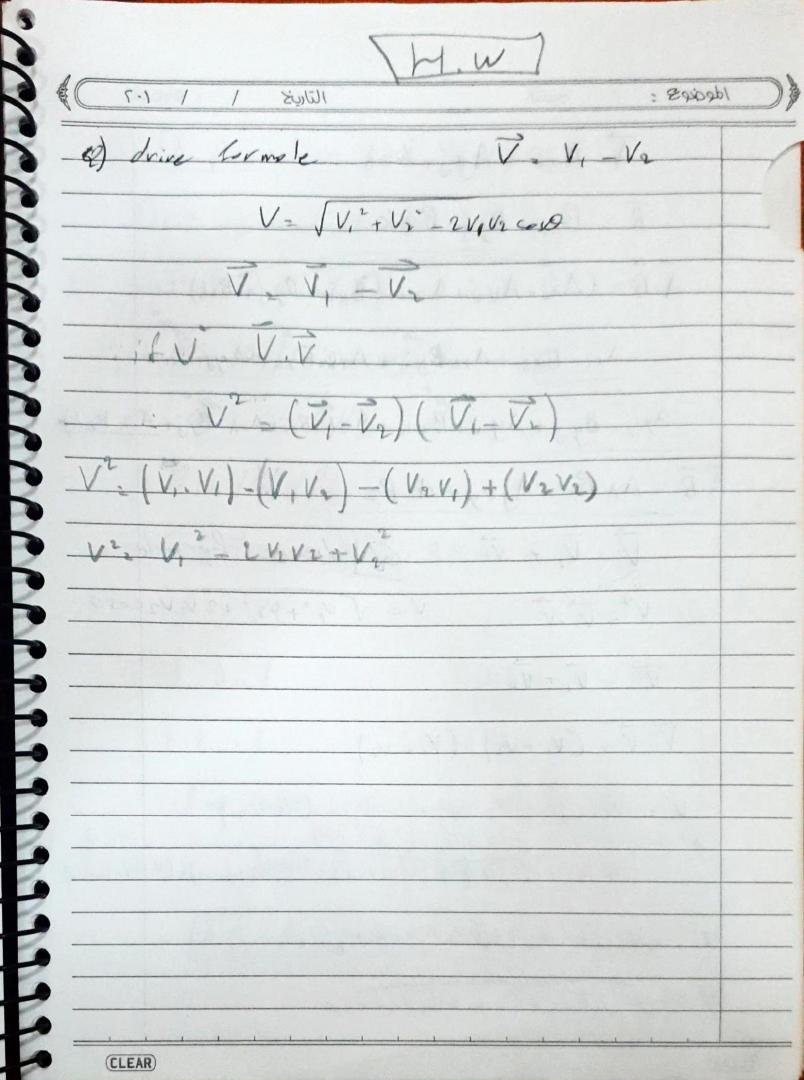 H.W
الموضوع : التاريخ / / ٢٠١
Q) drive formole V⃗ = V₁ - V₂
V = √V₁² + V₂² - 2V₁V₂ cosθ
V⃗ = V⃗₁ - V⃗₂
if V⃗ V⃗.V⃗
V² = (V⃗₁ - V⃗₂) (V⃗₁ - V⃗₂)
V² = (V⃗₁ . V₁) - (V₁ V₂) - (V₂ V₁) + (V₂ V₂)
V² = V₁² - 2 V₂ V₂ + V₂²
CLEAR